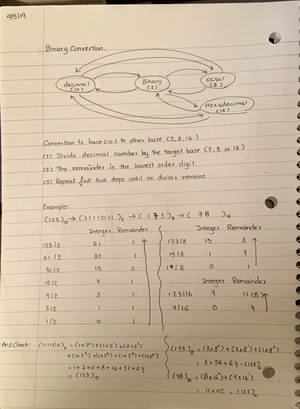 9/5/19
Binary Convertion.
decimal (10)
Binary (2)
Octal (8)
Hexadecimal (16)
Convertion to base (10) to other base (2, 8, 16)
(1) Divide decimal number by the target base (2, 8, or 16)
(2) The remainder is the lowest order digit
(3) Repeat first two steps until no divisor remains.
Example:
(123)10 → (1111011)2 → (173)8 → (7B)16
Integer Remainder
123/2 61 1
61/2 30 1
30/2 15 0
15/2 7 1
7/2 3 1
3/2 1 1
1/2 0 1
Integer Remainder
123/8 15 3
15/8 1 7
1/8 0 1
Integer Remainder
123/16 7 11(B)
7/16 0 7
Ans Check:
+ (1×2³) + (1×2⁴) + (1×2⁵) + (1×2⁶)
= 1+2+0+8+16+32+64
= (123)10
(173)8 = (3×8⁰) + (7×8¹) + (1×8²)
= 3+56+64 = (123)10
= 11+112 = (123)10